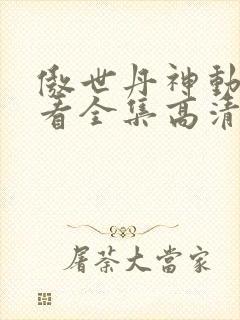 傲世丹神動
看全集高清
屠荼大當家